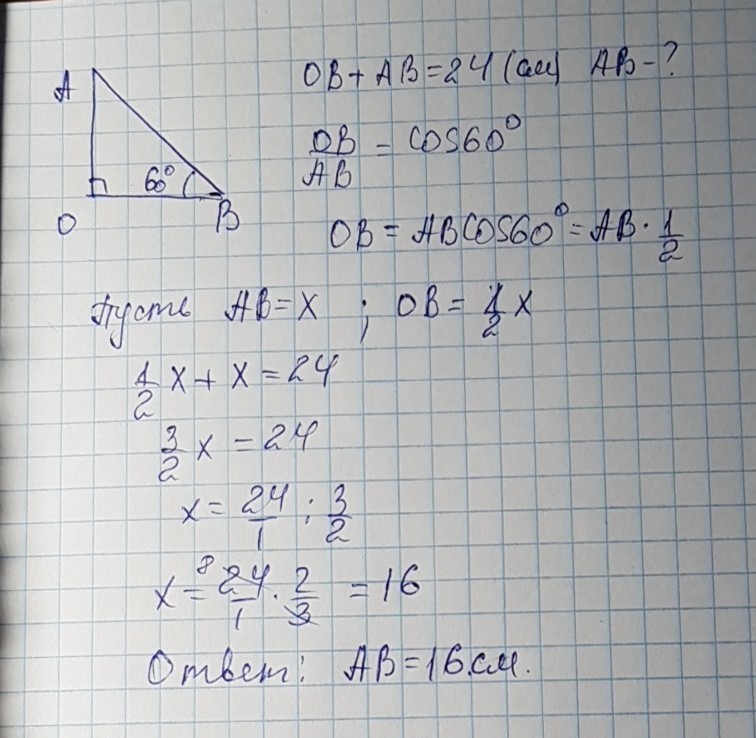 A
60°
O
B
OB + AB = 24 (см) AB - ?
OB/AB = cos60°
OB = ABcos60° = AB · 1/2
Пусть AB = x ; OB = 1/2 x
1/2 x + x = 24
3/2 x = 24
x = 24/1 : 3/2
x = 8 24/1 · 2/3 = 16
Ответ: AB = 16 см.